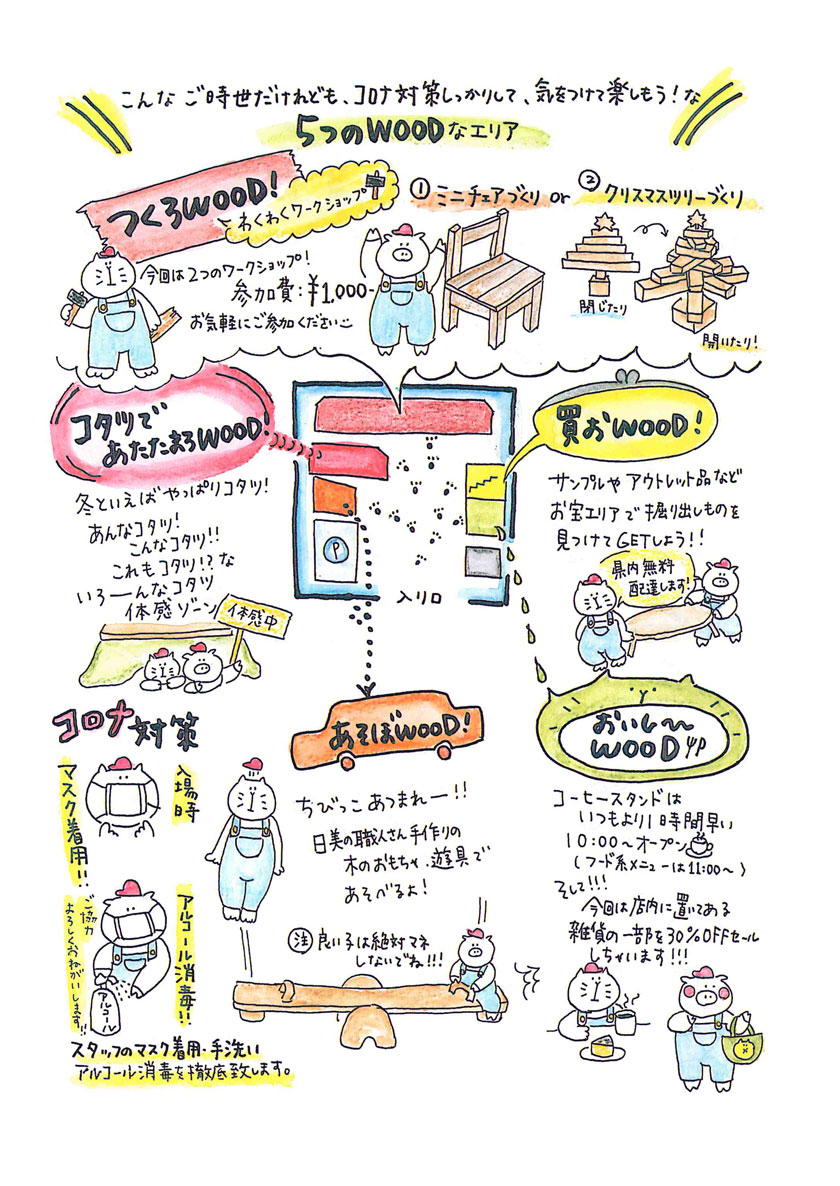 こんな ご時世だけれども、コロナ対策しっかりして、気をつけて楽しもう!な
5つのWOODなエリア
つくろWOOD!
わくわくワークショップ
① ミニチェアづくり or ② クリスマスツリーづくり
今回は2つのワークショップ!
参加費:¥1,000-
お気軽にご参加ください
閉じたり
開いたり!
コタツで
あたたまろWOOD!
冬といえばやっぱりコタツ!
あんなコタツ!
こんなコタツ!!
これもコタツ!?な
いろーんなコタツ
体感ゾーン
体感中
P
入り口
買おWOOD!
サンプルや アウトレット品など
お宝エリアで掘り出しものを
見つけてGETしよう!!
県内無料
配達します!
コロナ対策
入場時
マスク着用!!
アルコール消毒!!
ご協力
よろしくおねがいします!!
アルコール
スタッフのマスク着用・手洗い
アルコール消毒を徹底致します。
あそぼWOOD!
ちびっこあつまれー!!
日美の職人さん手作りの
木のおもちゃ、遊具で
あそべるよ!
注 良い子は絶対マネ
しないでね!!!
おいし〜
WOOD
コーヒースタンドは
いつもより1時間早い
10:00〜オープン
(フード系メニューは11:00〜)
そして!!!
今回は店内に置いてある
雑貨の一部を30%OFFセール
しちゃいます!!!